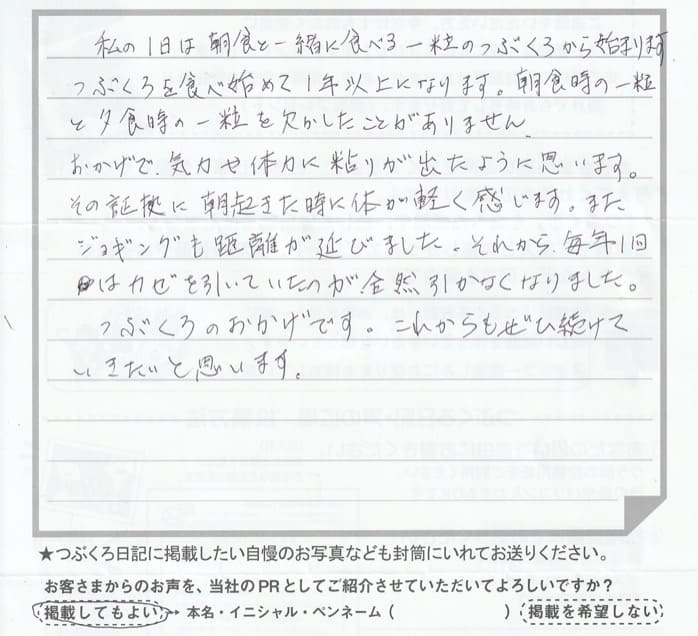 私の1日は朝食と一緒に食べる一粒のつぶくろから始まります
つぶくろを食べ始めて1年以上になります。朝食時の一粒
と夕食時の一粒を欠かしたことがありません
おかげで、気力や体力に粘りが出たように思います。
その証拠に朝起きた時に体が軽く感じます。また
ジョギングも距離が延びました。それから、毎年1回
はカゼを引いていたのが全然引かなくなりました。
つぶくろのおかげです。これからもぜひ続けて
いきたいと思います。
★つぶくろ日記に掲載したい自慢のお写真なども封筒にいれてお送りください。
お客さまからのお声を、当社のPRとしてご紹介させていただいてよろしいですか？
掲載してもよい→ 本名・イニシャル・ペンネーム（　　　　　　　）掲載を希望しない